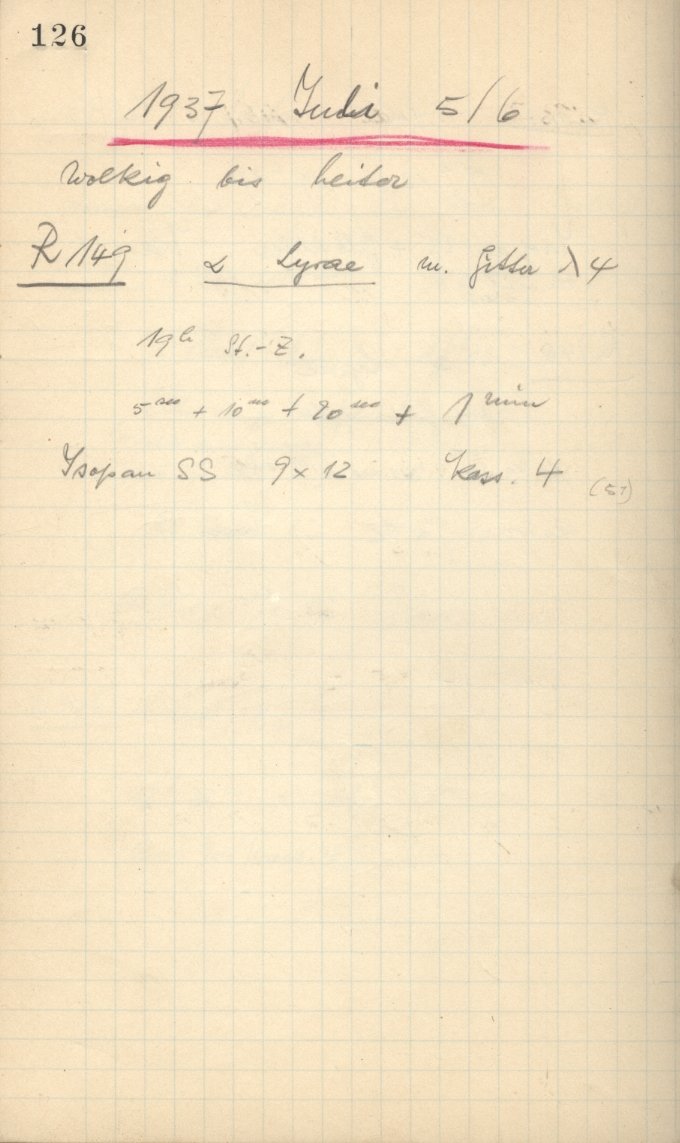 126
1937 Juli 5/6
Wolkig bis heiter
R 149 α Lyrae m. Gitter λ 4
19h St.-Z.
5 sec + 10 sec + 20 sec + 1 min
Isopan SS 9 x 12 Kass. 4 (51)